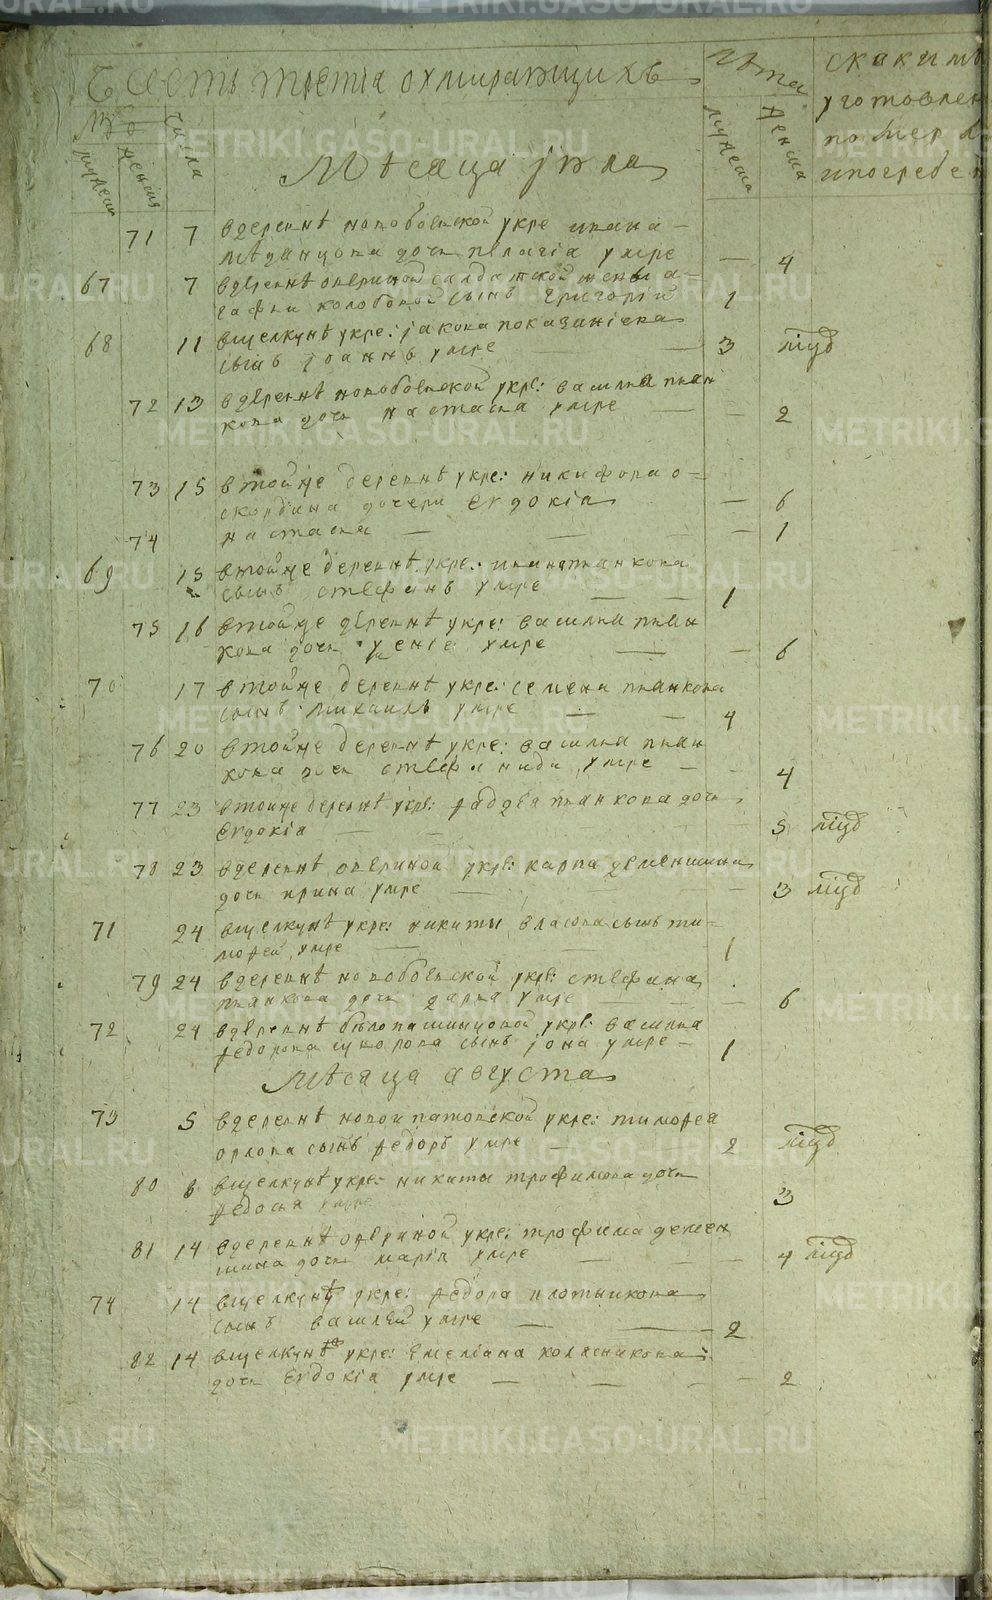 Часть третiа оумирающихъ
лѣта
скакимъ
уготовлен
погребен
мужеск
женска
числа
мужеска
женска
Мѣсяца iюла
71 7 вдеревнѣ новобоевской укре ивана
дочь пелагiа умре — 4
67 7 вдеревнѣ овериной салдатской жены а-
гафiи колобовой сынъ григорiй 1
68 11 вщелкунѣ укре: iакова
сынъ iоаннъ умре — 3 мцд
72 13 вдеревнѣ новобоевской укре: василиа пиан
кова дочь настасиа умре — 2
73 15 втойже деревнѣ укре: никифора о-
скордина дочери Евдокiа — 6
74 настасиа — 1
69 15 втойже деревнѣ укре: ивана пианкова
сынъ стефанъ умре — 1
75 16 втойже деревнѣ укре: василиа пиан
кова дочь умре — 6
70 17 втойже деревнѣ укре: семена пианкова
сынъ михаилъ умре — 4
76 20 втойже деревнѣ укре: василиа пиан
кова дочь стефанида умре — 4
77 23 втойже деревнѣ укре: фадѣя пианкова дочь
Евдокiа — 5 мцд
78 23 вдеревнѣ овериной укре: карпа деменшина
дочь ирина умре — 3 мцд
71 24 вщелкунѣ укре: никиты власова сынъ ти-
мофей умре — 1
79 24 вдеревнѣ новобоевской укре: стефана
пианкова дочь дарiа умре — 6
72 24 вдеревнѣ бѣлопашинцовой укре: василиа
федорова суворова сынъ iона умре — 1
Мѣсяца августа
73 5 вдеревнѣ новоипатовской укре: тимофеа
орлова сынъ федоръ умре 2 мцд
80 8 вщелкунѣ укре: никиты трофимова дочь
федосья умре 3
81 14 вдеревнѣ овериной укре: трофима демен
шина дочь марiа умре — 4 мцд
74 14 вщелкунѣ укре: федора плотникова
сынъ василей умре — 2
82 14 вщелкунѣ укре: Емелiана колясникова
дочь Евдокiа умре — 2
METRIKI.GASO-URAL.RU